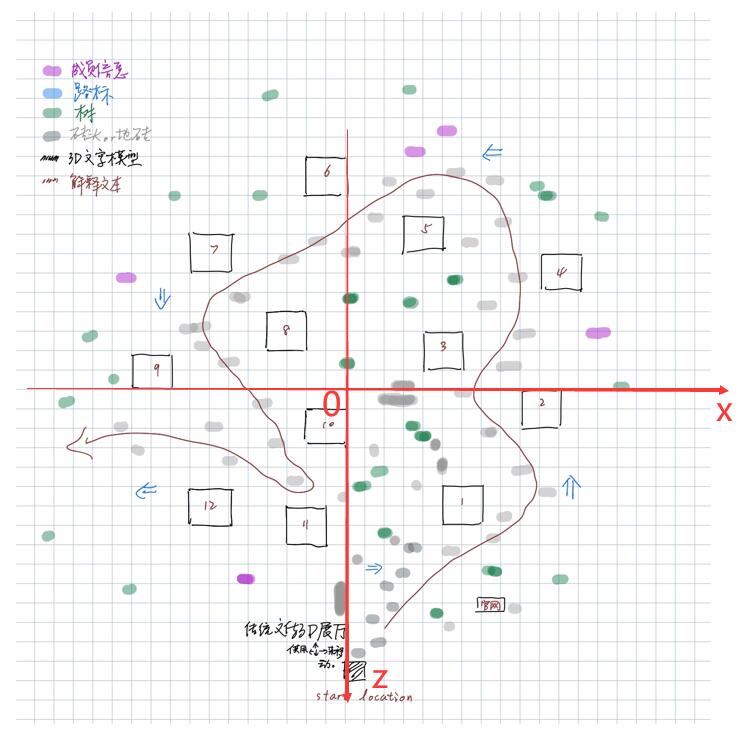 成员信息
路标
树
石头or地砖
3D文字模型
解释文本
6
5
7
4
8
3
9
0
X
2
10
1
12
11
官网
传统文化3D展厅
使用←↑→来移
动。
Z
start location